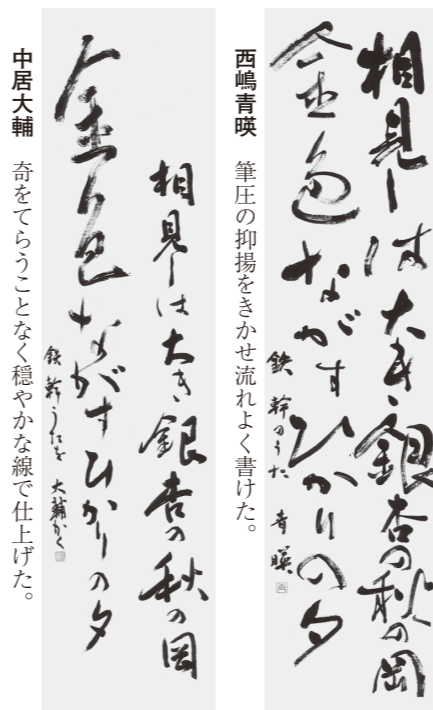 相見しは大き銀杏の秋の岡
金色ながすひかりの夕
鉄幹のうた 青暎
西嶋青暎 筆圧の抑揚をきかせ流れよく書けた。
相見しは大き銀杏の秋の岡
金色ながすひかりの夕
鉄幹うたを 大輔かく
中居大輔 奇をてらうことなく穏やかな線で仕上げた。